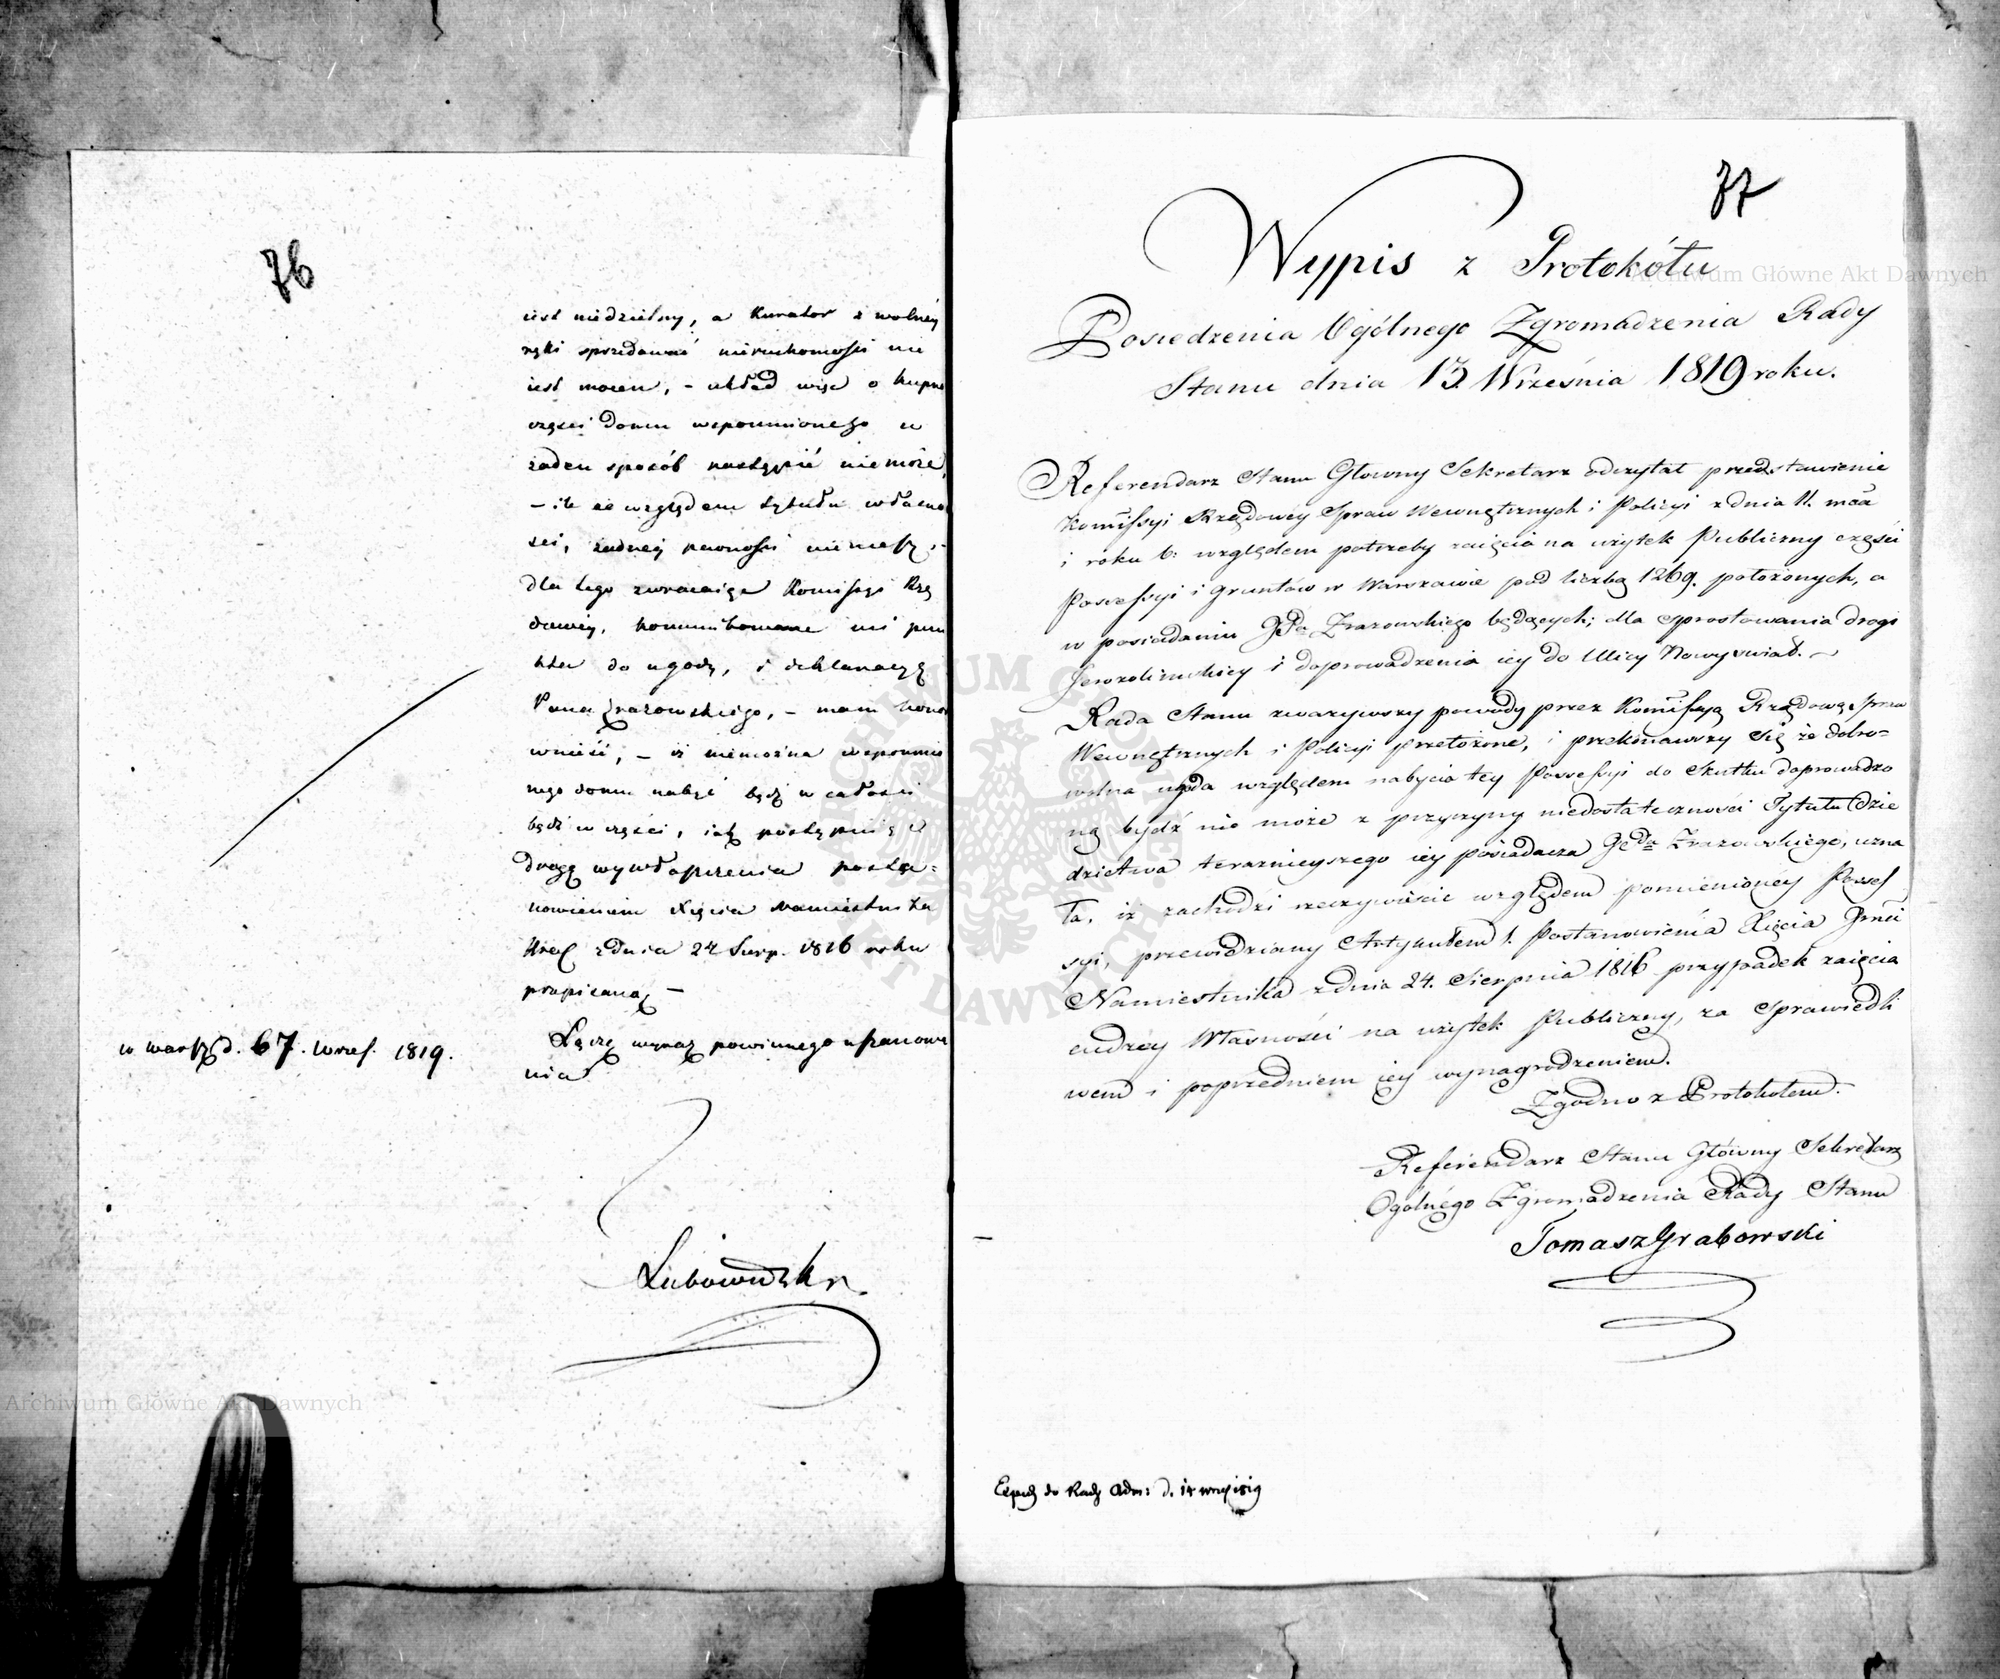 76
iest niedzielny, a Kurator z wolnéy
ręki sprzedawać nieruchomości nie
iest mocen, – układ więc o kupno
części domu wspomnionego w
żaden sposób nastąpić niemoże,
– ile ze względem tytułu własno
ści, żadney pewności niemasz, –
dla tego zwracaiąc Komissyi Rzą
dowéy, kommunikowane mi pun
kta do ugody, i deklaracyą
Pana Zrazowskiego, – mam honor
wnieść, – iż niemożna wspomnio
nego domu nabyć bądź w całości
bądź w części, iak postępuiąc
drogą wywłaszczenia posta-
nowieniem Xięcia Namiestnika
Król z dnia 24 Sierp. 1816 roku
przpisaną –
w Warsz d. 67. Wrześ. 1819.
Łączę wyraz powinnego uszanowa
nia
Lubowidzki
77
Wypis z Protokółu
Posiedzenia Ogólnego Zgromadzenia Rady
Stanu dnia 13 Września 1819 roku.
Referendarz Stanu Głowny Sekretarz odczytał przedstawienie
Kommissyi Rządowey Spraw Wewnętrznych i Policyi z dnia 11. mca
i roku b: względem potrzeby zaięcia na użytek Publiczny części
Possessyi i gruntów w Warszawie pod liczbą 1269. położonych, a
w posiadaniu Zrazowskiego będących; dla sprostowania drogi
Jerozolimskiey i doprowadzenia iey do Ulicy Nowy swiat. –
Rada Stanu zważywszy powody przez Kommissyą Rządową Spraw
Wewnętrznych i Policyi przełożone, i przekonawszy się że dobro-
wolna ugoda względem nabycia tey Possessyi do skutku doprowadzo
ną bydź nie może z przyczyny niedostateczności Tytułu dzie
dzictwa teraznieyszego iey posiadacza Zrazowskiego, uzna
ła, iż zachodzi rzeczywiście względem pomienioney Posses
syi, przewidziany Artykułem 1. Postanowienia Xięcia Jmci
Namiestnika z dnia 24. Sierpnia 1816 przypadek zaięcia
cudzey Własności na użytek Publiczny, za sprawiedli
wem i poprzedniem iey wynagrodzeniem.
Zgodno z Protokołem.
Referendarz Stanu Główny Sekretarz
Ogólnego Zgromadzenia Rady Stanu
Tomasz Grabowski
do Rady Adm: d. 14 1819
Archiwum Główne Akt Dawnych
Archiwum Główne Akt Dawnych
ARCHIWUM GŁÓWNE AKT DAWNYCH